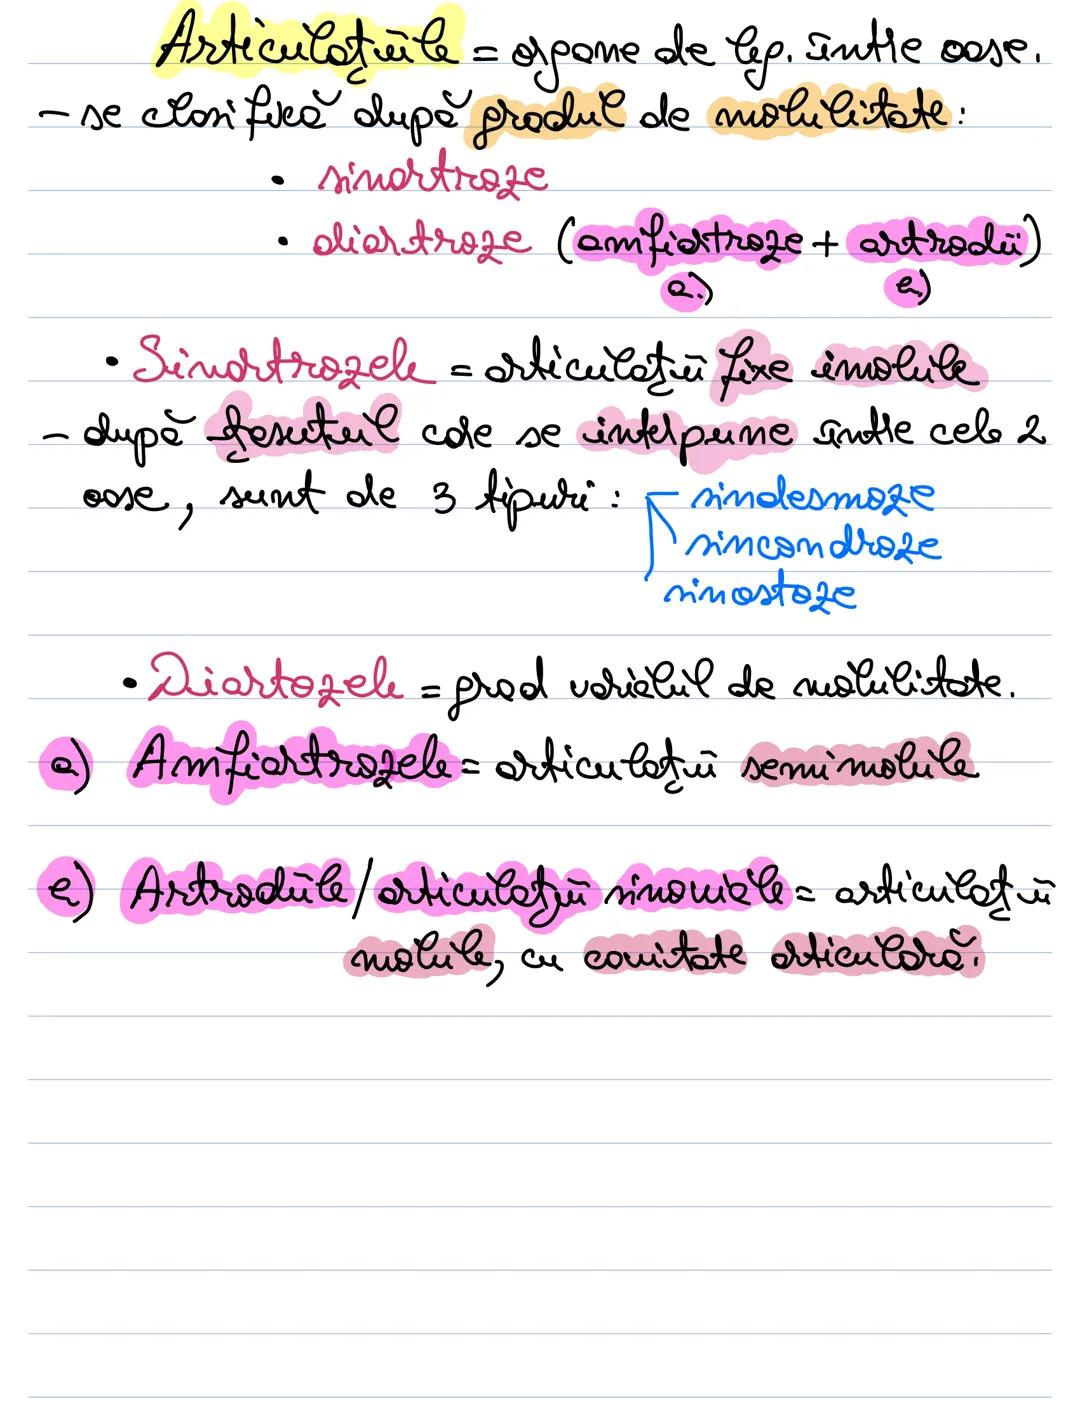 Articulațiile = organe de leg. între oase.
- se clasifică după gradul de mobilitate:
• sinartroze
• diartroze (amfiartroze + artrodii)
a.) b)
• Sinartrozele = articulații fixe imobile
- după țesutul care se interpune între cele 2
oase, sunt de 3 tipuri: sindesmoze
sincondroze
sinostoze
• Diartozele = grad variabil de mobilitate.
a) Amfiartrozele = articulații semimobile
b) Artrodiile/articulații sinoviale = articulații
mobile, cu cavitate articulară.